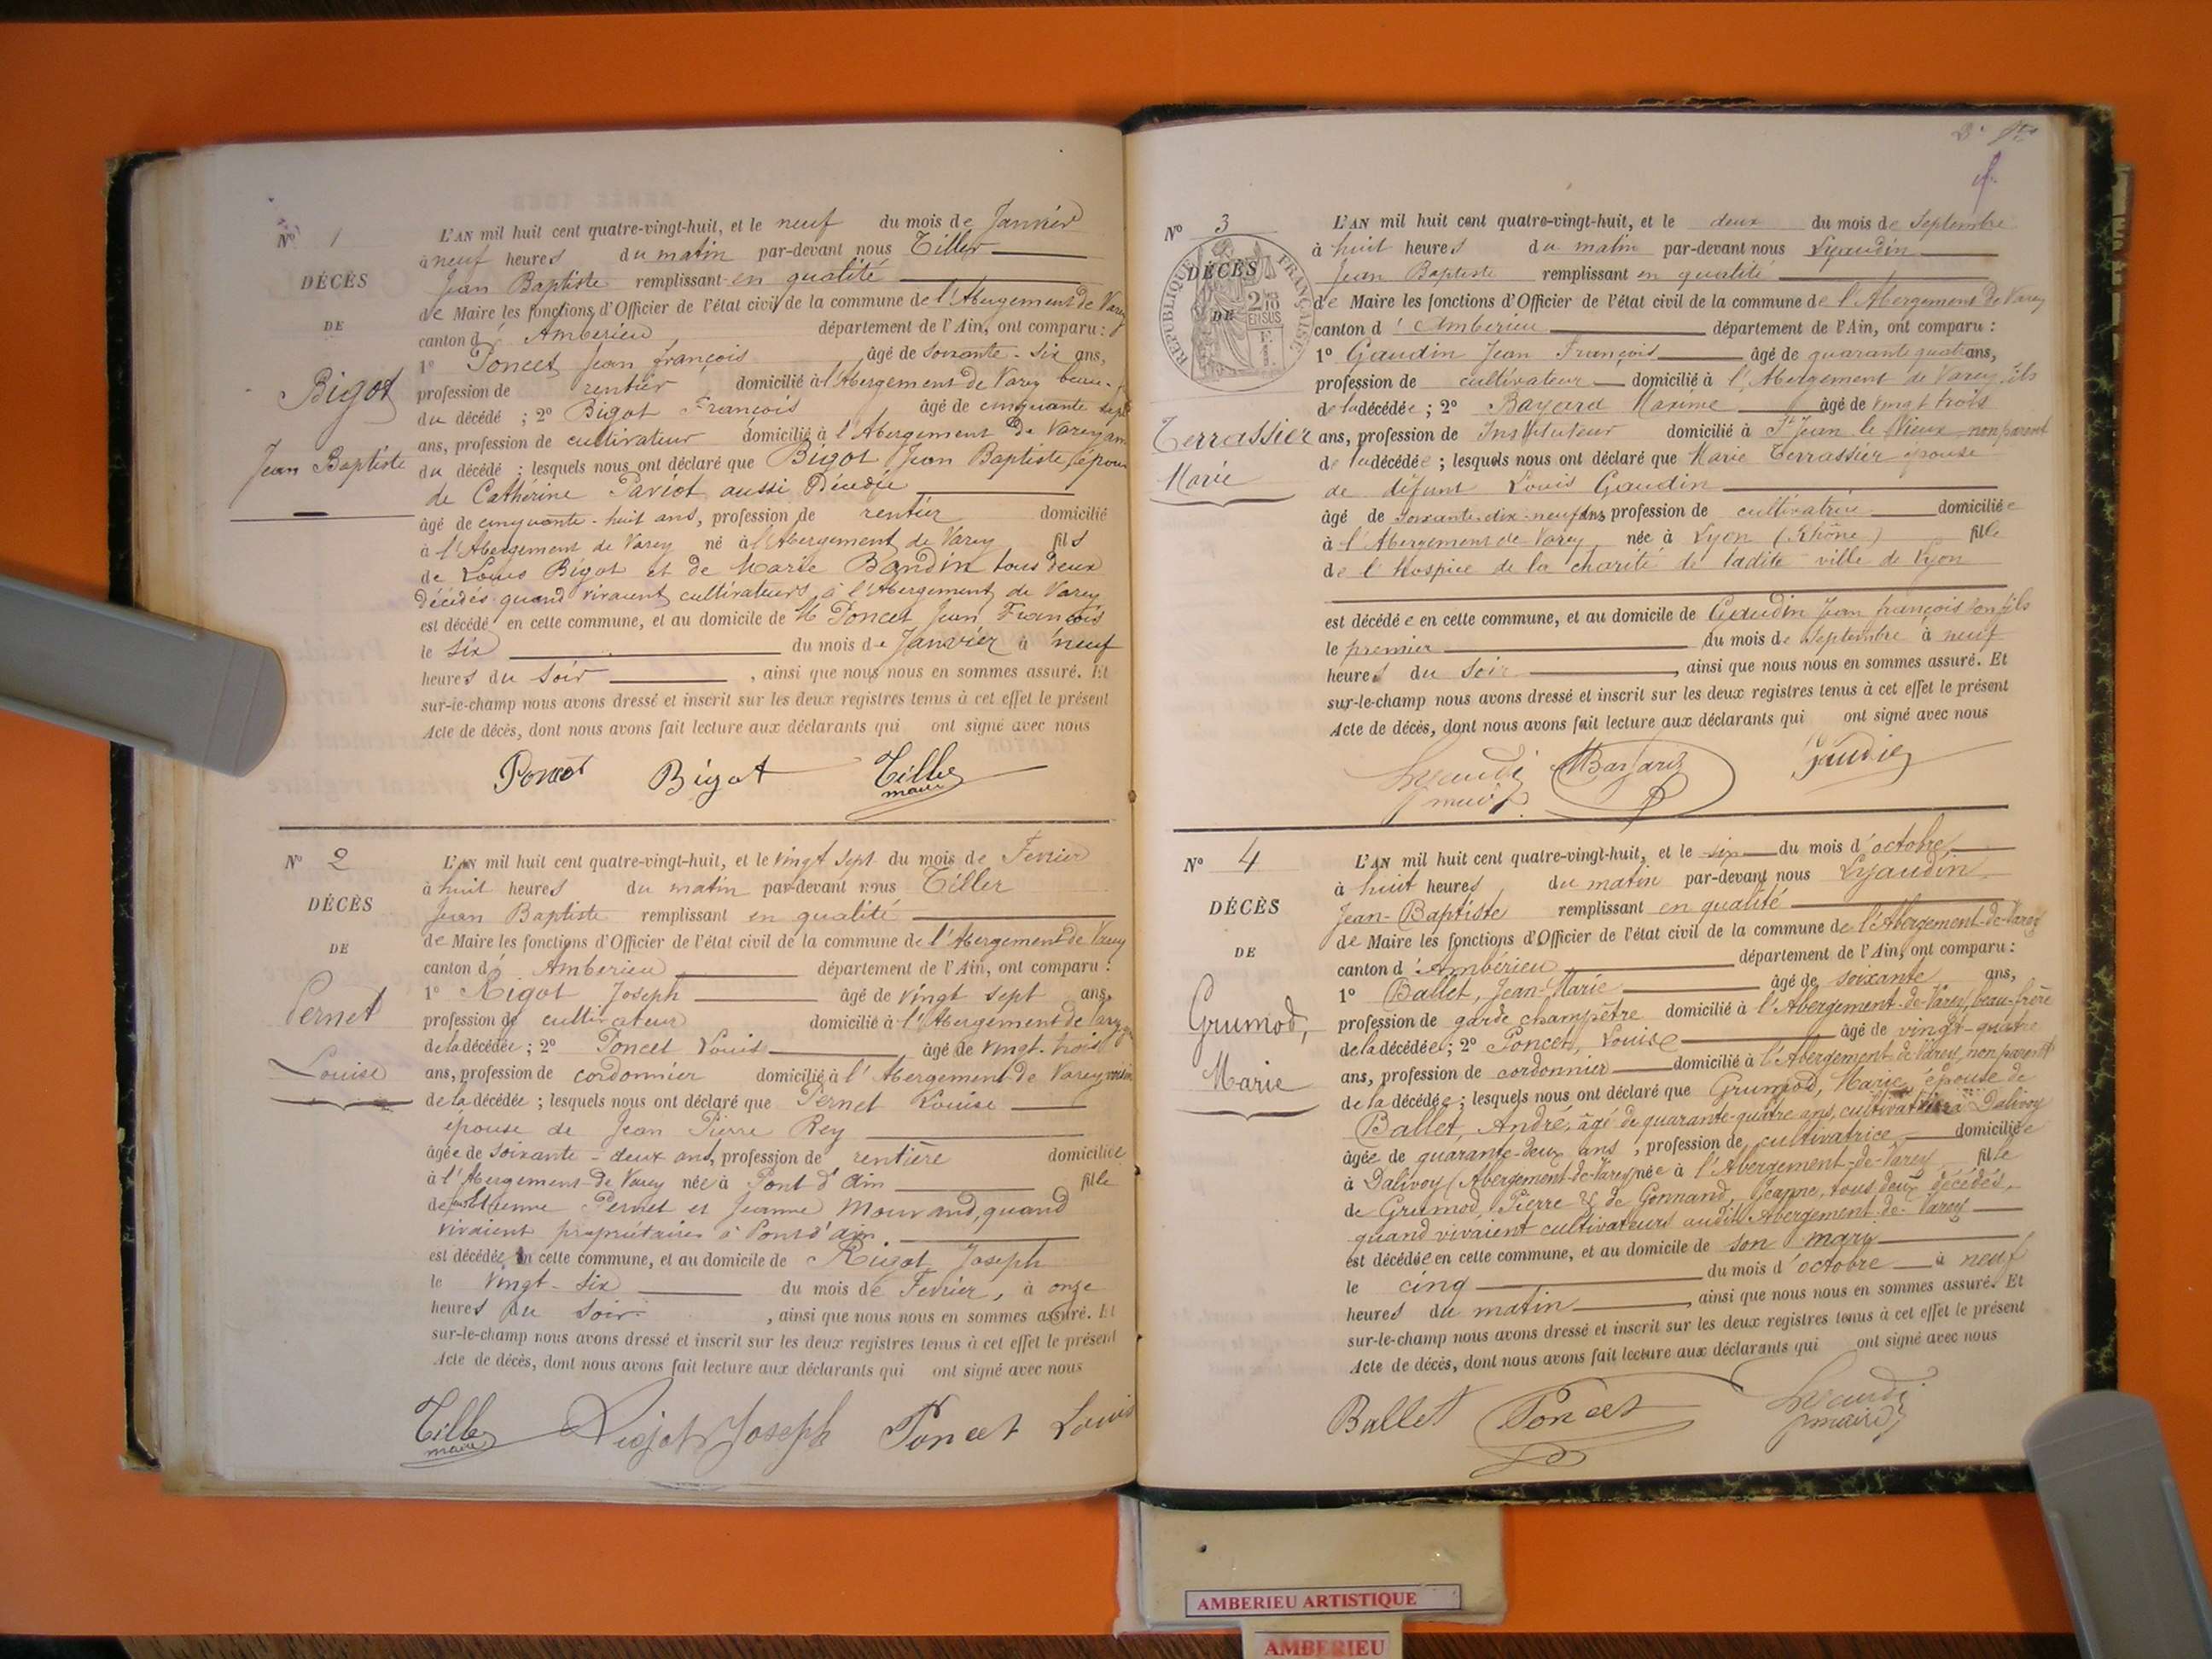 N° 1
DÉCÈS
DE
Bigot
Jean Baptiste
L'AN mil huit cent quatre-vingt-huit, et le neuf du mois de Janvier
à neuf heures du matin par-devant nous Tiller
Jean Baptiste remplissant en qualité
de Maire les fonctions d'Officier de l'état civil de la commune de l'Abergement de Varey
canton d'Amberieu département de l'Ain, ont comparu :
1° Poncet Jean François âgé de soixante-six ans,
profession de rentier domicilié à l'Abergement de Varey beau-
du décédé ; 2° Bigot François âgé de cinquante sept
ans, profession de cultivateur domicilié à l'Abergement de Varey ami
du décédé ; lesquels nous ont déclaré que Bigot Jean Baptiste époux
de Cathérine Pariot aussi Décédée
âgé de cinquante-huit ans, profession de rentier domicilié
à l'Abergement de Varey né à l'Abergement de Varey fils
de Louis Bigot et de Marie Bandin tous deux
décédés quand vivaient cultivateurs à l'Abergement de Varey
est décédé en cette commune, et au domicile de M Poncet Jean François
le six du mois de Janvier à neuf
heures du soir, ainsi que nous nous en sommes assuré. Et
sur-le-champ nous avons dressé et inscrit sur les deux registres tenus à cet effet le présent
Acte de décès, dont nous avons fait lecture aux déclarants qui ont signé avec nous
Poncet Bigot Tiller
maire
N° 2
DÉCÈS
DE
Pernet
Louise
L'AN mil huit cent quatre-vingt-huit, et le vingt sept du mois de Fevrier
à huit heures du matin par-devant nous Tiller
Jean Baptiste remplissant en qualité
de Maire les fonctions d'Officier de l'état civil de la commune de l'Abergement de Varey
canton d'Amberieu département de l'Ain, ont comparu :
1° Rigot Joseph âgé de vingt sept ans,
profession de cultivateur domicilié à l'Abergement de Varey
de la décédée ; 2° Poncet Louis âgé de vingt-trois
ans, profession de cordonnier domicilié à l'Abergement de Varey voisin
de la décédée ; lesquels nous ont déclaré que Pernet Louise
épouse de Jean Pierre Rey
âgée de soixante-deux ans, profession de rentière domiciliée
à l'Abergement de Varey née à Pont d'Ain fille
de Etienne Pernet et Jeanne Mourand, quand
vivaient propriétaires à Pont d'ain
est décédée en cette commune, et au domicile de Rigot Joseph
le vingt-six du mois de Fevrier, à onze
heures du soir, ainsi que nous nous en sommes assuré. Et
sur-le-champ nous avons dressé et inscrit sur les deux registres tenus à cet effet le présent
Acte de décès, dont nous avons fait lecture aux déclarants qui ont signé avec nous
Tiller Rigot Joseph Poncet Louis
maire
N° 3
DÉCÈS
DE
RÉPUBLIQUE FRANÇAISE
2/10 EN SUS
Terrassier
Marie
L'AN mil huit cent quatre-vingt-huit, et le deux du mois de Septembre
à huit heures du matin par-devant nous Lyaudin
Jean Baptiste remplissant en qualité
de Maire les fonctions d'Officier de l'état civil de la commune de l'Abergement de Varey
canton d'Amberieu département de l'Ain, ont comparu :
1° Gaudin Jean François âgé de quarante quatre ans,
profession de cultivateur domicilié à l'Abergement de Varey fils
de la décédée ; 2° Bayard Maxime âgé de vingt trois
ans, profession de Instituteur domicilié à St Jean le Vieux non parent
de la décédée ; lesquels nous ont déclaré que Marie Terrassier épouse
de défunt Louis Gaudin
âgé de soixante-dix-neuf ans profession de cultivatrice domiciliée
à l'Abergement de Varey née à Lyon (Rhône) fille
de l'hospice de la charité de ladite ville de Lyon
est décédée en cette commune, et au domicile de Gaudin Jean françois son fils
le premier du mois de Septembre à neuf
heures du soir, ainsi que nous nous en sommes assuré. Et
sur-le-champ nous avons dressé et inscrit sur les deux registres tenus à cet effet le présent
Acte de décès, dont nous avons fait lecture aux déclarants qui ont signé avec nous
N° 4
DÉCÈS
DE
Grumod,
Marie
L'AN mil huit cent quatre-vingt-huit, et le six du mois d'octobre
à huit heures du matin par-devant nous Lyaudin
Jean-Baptiste remplissant en qualité
de Maire les fonctions d'Officier de l'état civil de la commune de l'Abergement-de-Varey
canton d'Ambérieu département de l'Ain, ont comparu :
1° Ballet, Jean-Marie âgé de soixante ans,
profession de garde champêtre domicilié à l'Abergement-de-Varey, beau-frère
de la décédée ; 2° Poncet, Louis âgé de vingt-quatre
ans, profession de cordonnier domicilié à l'Abergement de Varey, non parent
de la décédée ; lesquels nous ont déclaré que Grumod, Marie, épouse de
Ballet, André, âgé de quarante-quatre ans, cultivateur à Dalivoy
âgée de quarante-deux ans, profession de cultivatrice domiciliée
à Dalivoy (Abergement-de-Varey) née à l'Abergement-de-Varey fille
de Grumod, Pierre & de Gonnand, Jeanne, tous deux décédés,
quand vivaient cultivateurs audit Abergement-de-Varey
est décédée en cette commune, et au domicile de son mary
le cinq du mois d'octobre à neuf
heures du matin, ainsi que nous nous en sommes assuré. Et
sur-le-champ nous avons dressé et inscrit sur les deux registres tenus à cet effet le présent
Acte de décès, dont nous avons fait lecture aux déclarants qui ont signé avec nous
Ballet Poncet
AMBERIEU ARTISTIQUE
AMBERIEU